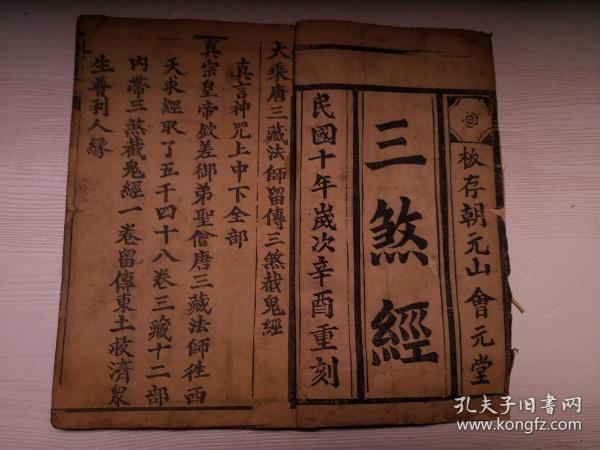 板存朝元山會元堂
三煞經
民國十年歲次辛酉重刻
大乘唐三藏法師留傳三煞截鬼經
真言神咒上中下全部
真宗皇帝欽差御弟聖僧唐三藏法師徃西
天求經取了五千四十八卷三藏十二部
内帶三煞截鬼經一卷留傳東土救濟衆
生普利人緣
孔夫子旧书网
www.kongfz.com